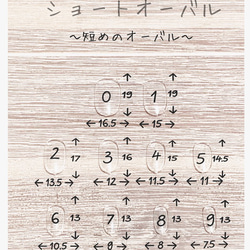 ショートオーバル
〜短めのオーバル〜
0 ↑ 19 ↓ 1 ↑ 19 ↓
←16.5→ ←15→
2 ↑ 17 ↓ 3 ↑ 16 ↓ 4 ↑ 15 ↓ 5 ↑ 14.5 ↓
←13.5→ ←12→ ←11.5→ ←11→
6 ↑ 13 ↓ 7 ↑ 13 ↓ 8 ↑ 13 ↓ 9 ↑ 13 ↓
←10.5→ ←9→ ←8→ ←7.5→